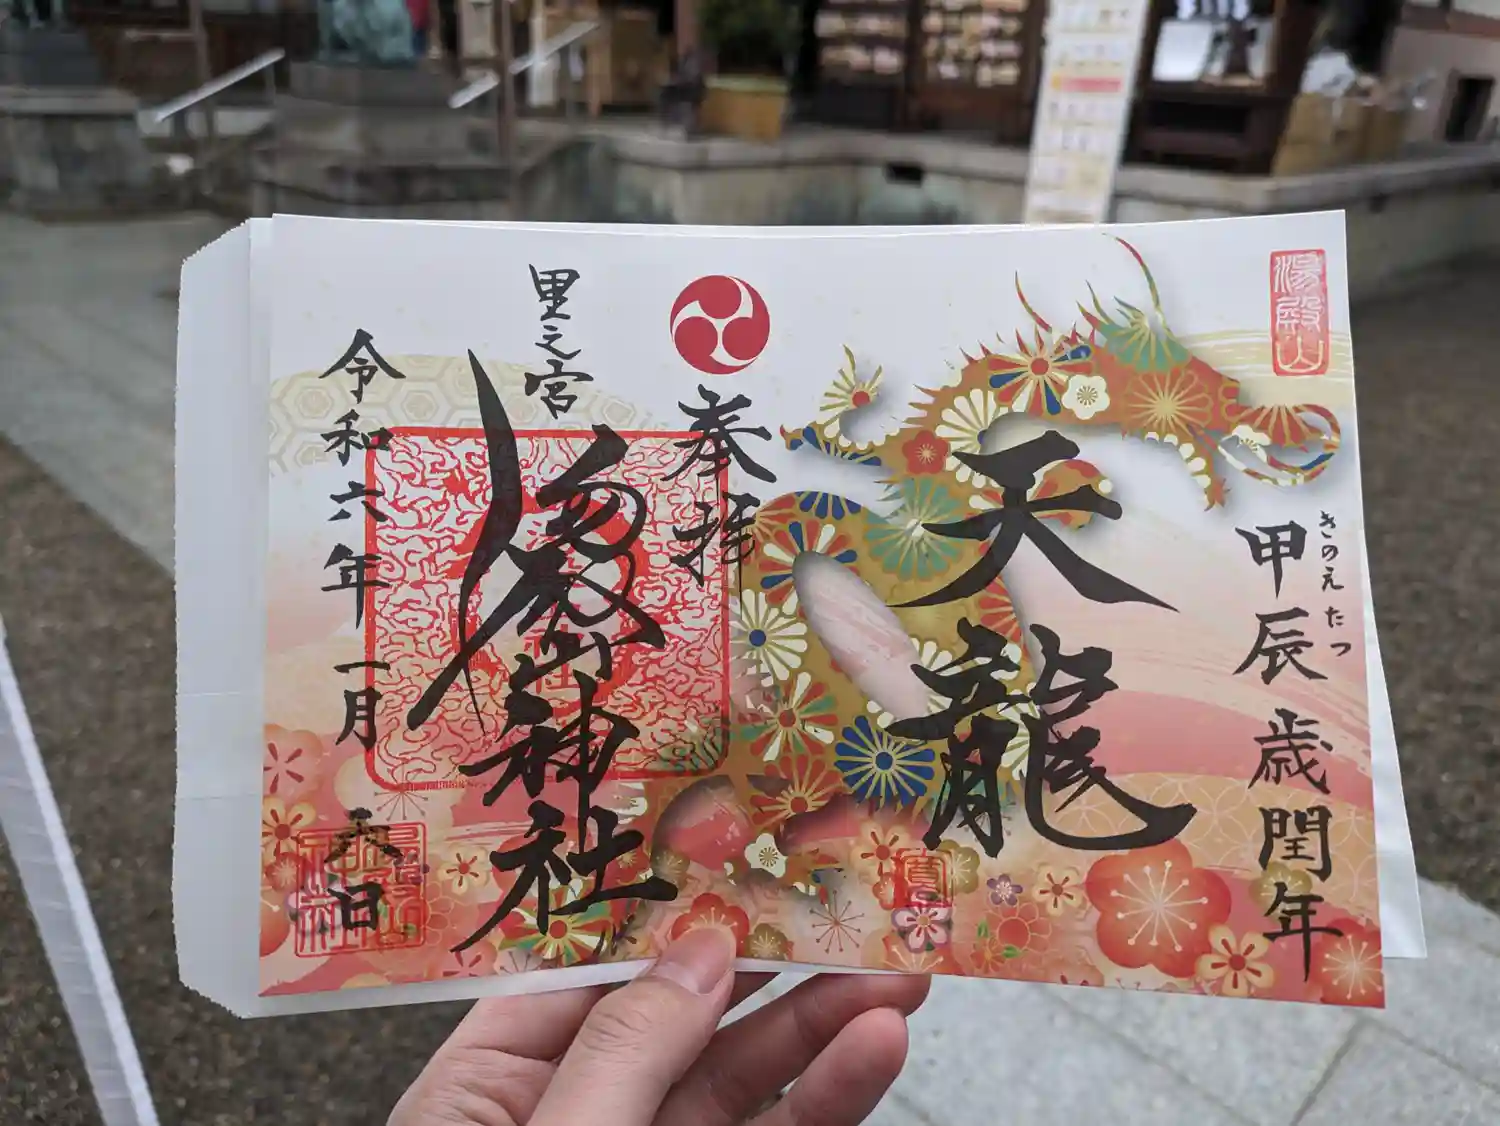 湯殿山
きのえたつ
甲辰歳閏年
天龍
奉拝
里之宮
湯殿山神社
令和六年一月六日